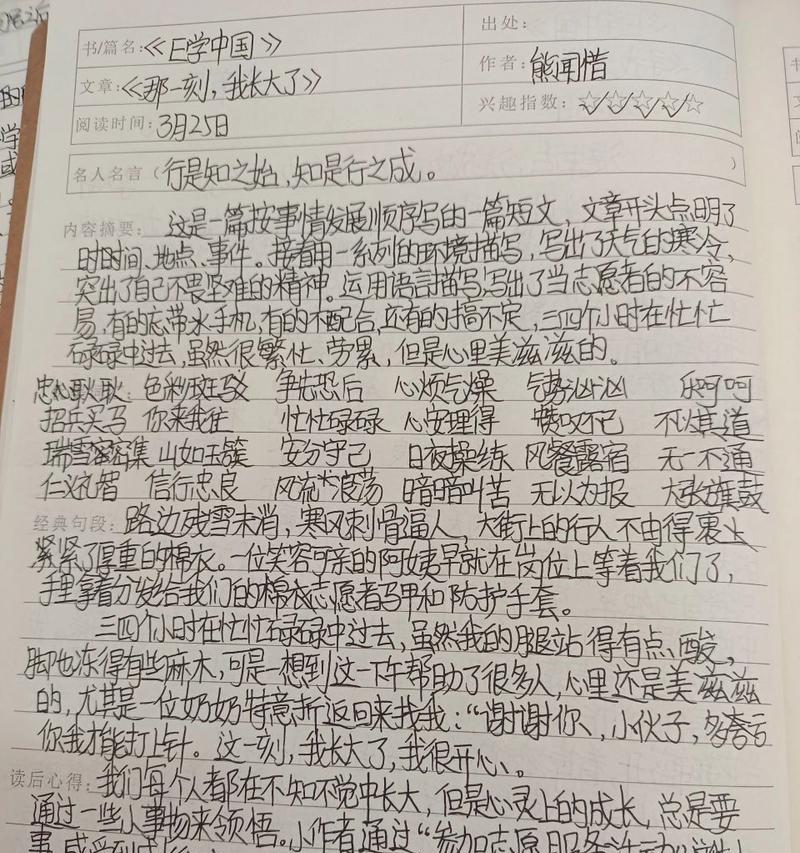 书/篇名：《E学中国》
出处：
文章：《那一刻，我长大了》
作者：熊闻惜
阅读时间：3月25日
兴趣指数：☆☆☆☆☆
名人名言（行是知之始，知是行之成。）
内容摘要：这是一篇按事情发展顺序写的一篇短文，文章开头点明了
时时间、地点、事件。接着用一系列的环境描写，写出了天气的寒冷，
突出了自己不畏坚难的精神。运用语言描写，写出了当志愿者的不容
易，有的忘带水手机，有的不配合，还有的搞不定，三四个小时在忙忙
碌碌中过去，虽然很繁忙、劳累，但是心里美滋滋的。
忠心耿耿 色彩斑驳 争先恐后 心烦气燥 气势汹汹 乐呵呵
招兵买马 你来我往 忙忙碌碌 心安理得 赞叹不已 不以其道
瑞雪密集 山如玉簇 安分守己 日夜操练 风餐露宿 无一不通
仁义礼智 信行忠良 风流浪荡 暗暗叫苦 无以为报 大张旗鼓
经典句段：路边残雪未消，寒风刺骨逼人，大街上的行人不由得裹上
紧紧了厚重的棉衣。一位笑容可亲的阿姨早就在岗位上等着我们了，
手里拿着分发给我们的棉衣志愿者马甲和防护手套。
三四个小时在忙忙碌碌中过去，虽然我的腿站得有点酸，
脚也冻得有些麻木，可是一想到这一下午帮助了很多人，心里还是美滋滋
的，尤其是一位奶奶特意折返回来找我：“谢谢你，小伙子，多夸亏
你我才能打上针。这一刻，我长大了，我很开心。
读后心得：我们每个人都在不知不觉中长大，但是心灵上的成长，总是要
通过一些小事物来领悟。小作者通过“参加志愿服务活动”
事，感受到成长